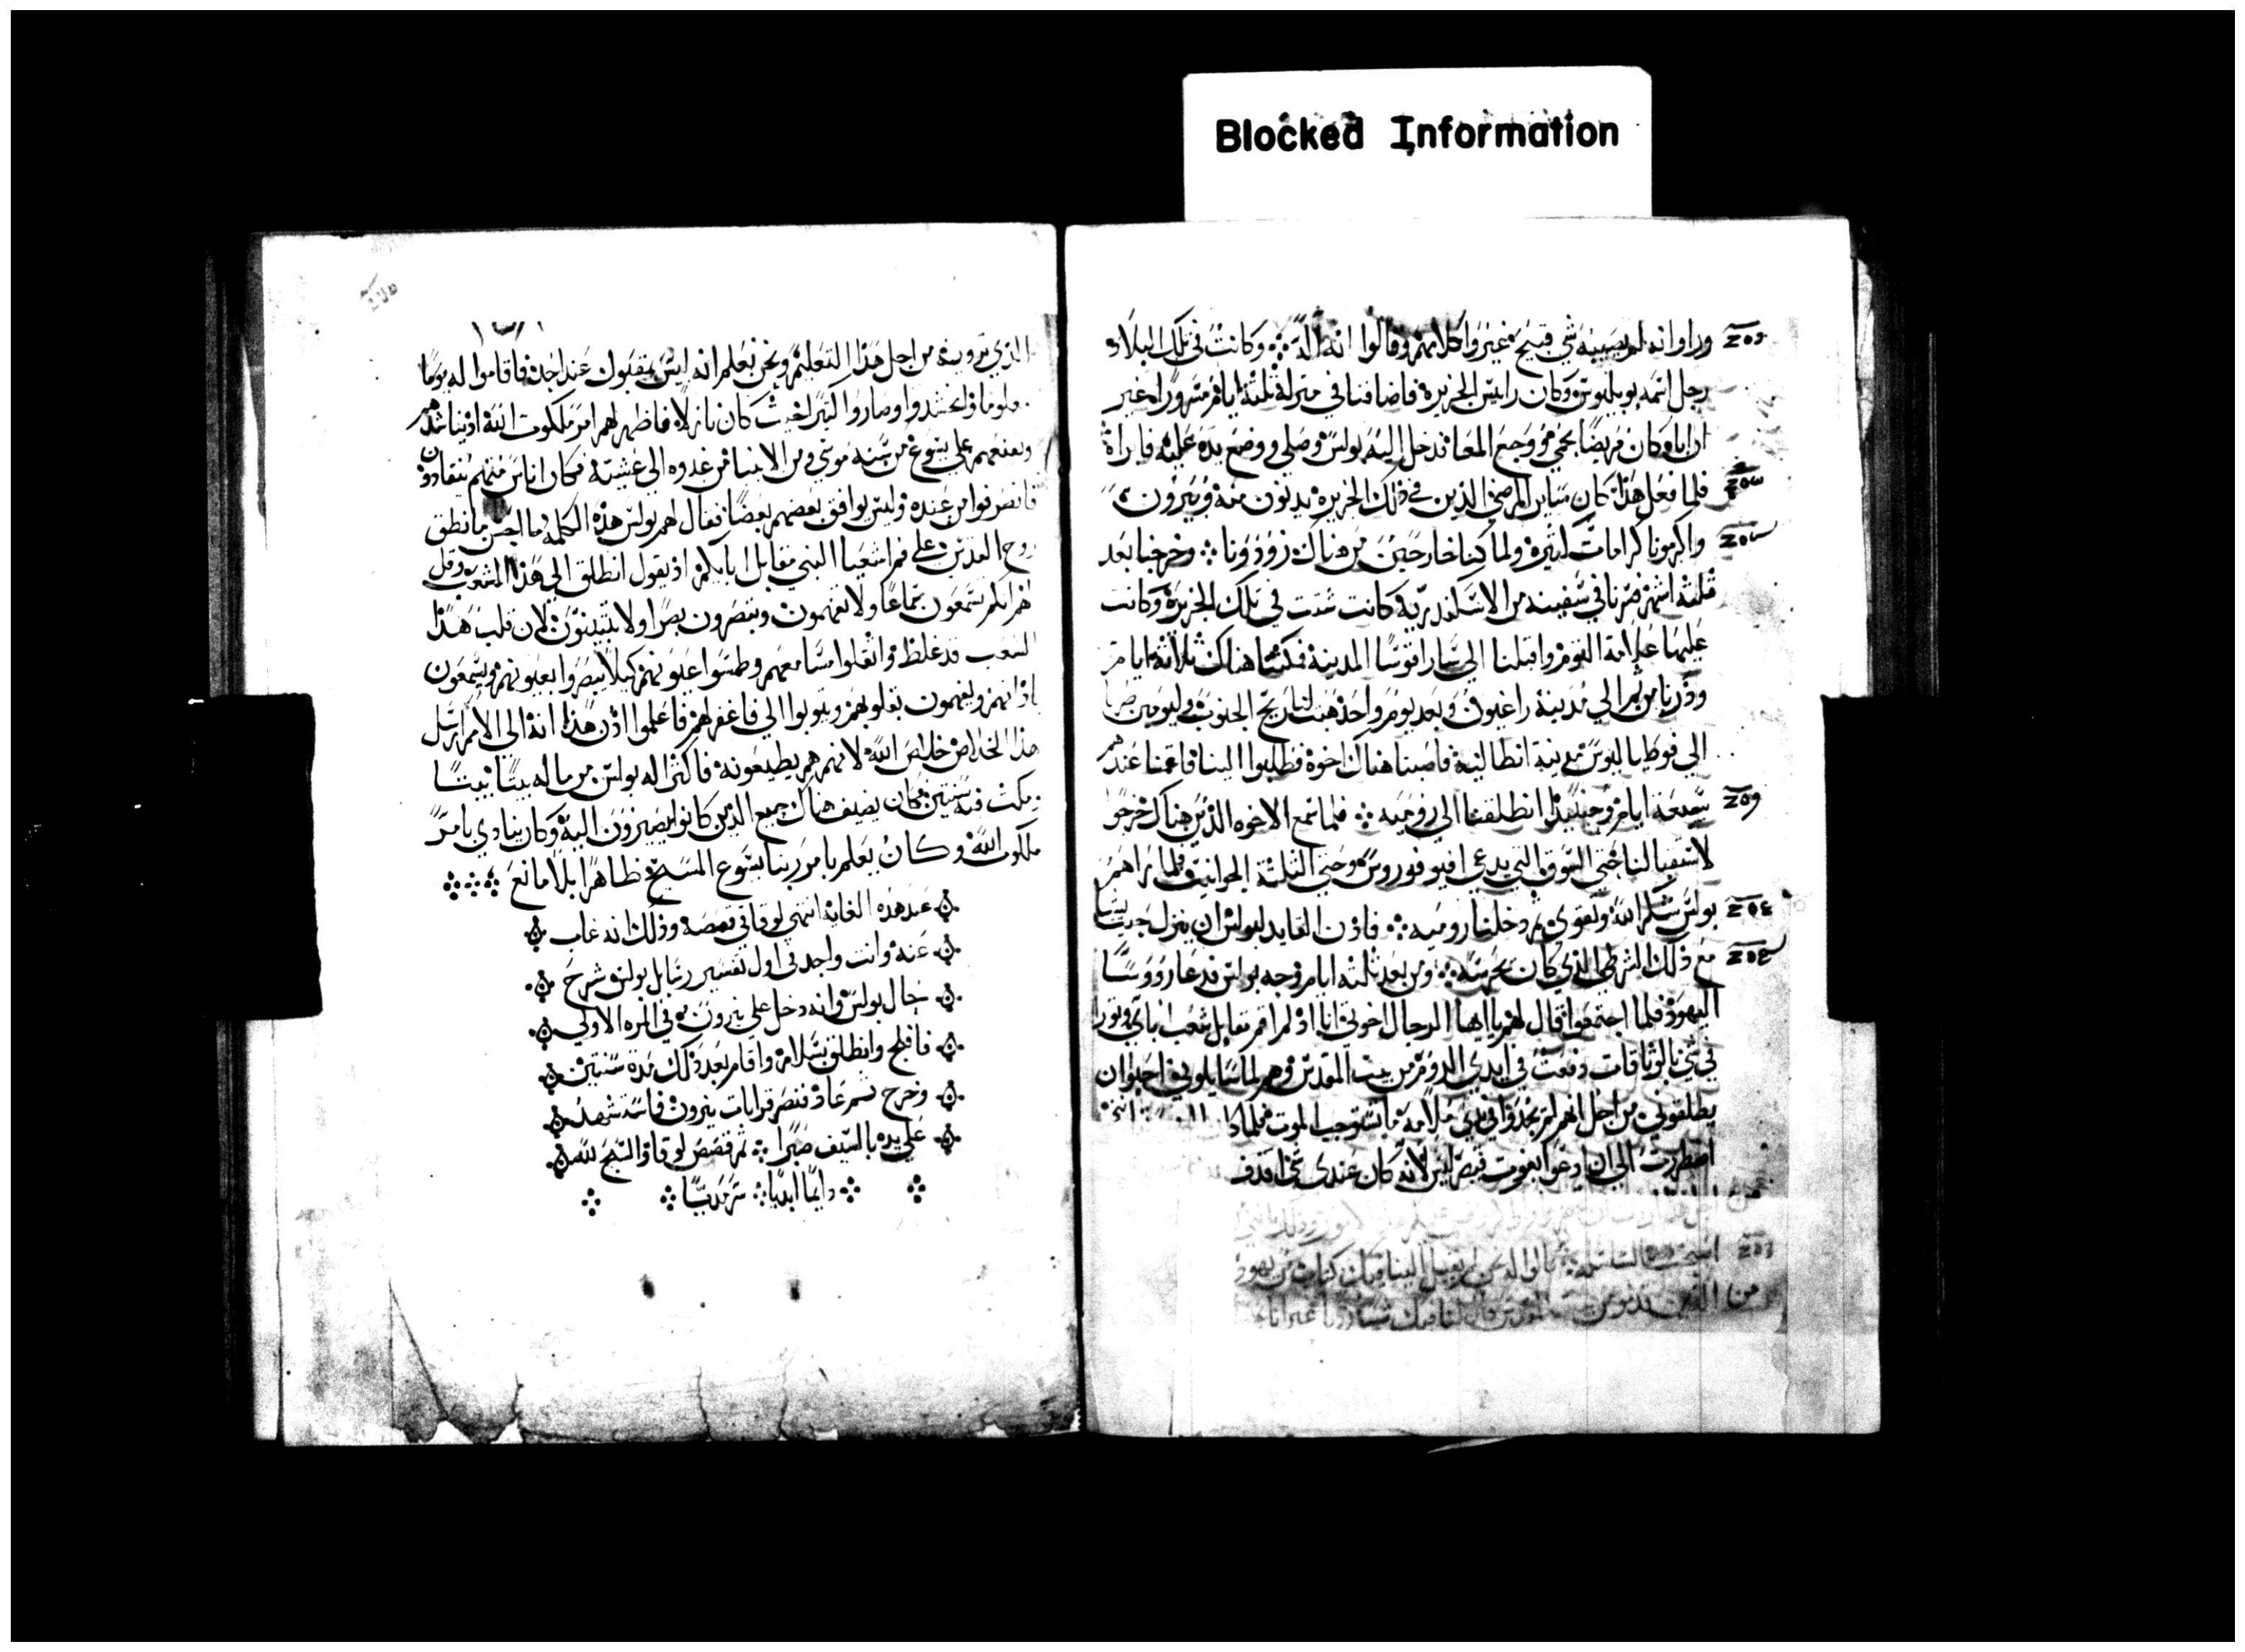 Blocked Information
وراوا انه لم يصيبه شي قبيح غيروا كلامهم وقالوا انه الله وكانت في تلك البلاد
رجل اسمه بوبليوس وكان رايس الجزيره فاضافنا في منزله ثلثة ايام مسرورا غير
ان اباه كان مريضا بحمي ووجع المعا فدخل اليه بولس وصلي ووضع يده عليه فابراه
فلما فعل هذا كان ساير المرضي الذين في ذلك الجزيره يدنون منه ويبرون
واكرمونا كرامات كثيره ولما كنا خارجين من هناك زودونا وخرجنا بعد
ثلثه اشهر سرنا في سفينه من الاسكندريه كانت شتت في تلك الجزيره وكانت
عليها علامة التوم واقبلنا الي ساراقوسا المدينة فمكثنا هناك ثلاثة ايام
ودرنا من ثم الي مدينة راغيون وبعد يوم واحد هبت لنا ريح الجنوب وليومين صرنا
الي فوطيالوس مدينة انطاليه فاصبنا هناك اخوة فطلبوا الينا فاقمنا عندهم
سبعة ايام وحينيذ انطلقنا الي روميه فلما سمع الاخوه الذين هناك خرجوا
لاستقبالنا حتي السوق التي يدعي افيوفوروس وحتي الثلثة الحوانيت فلما راهم
بولس شكر الله وتقوي ودخلنا روميه فاذن القايد لبولس ان ينزل حيث يشا
مع ذلك الشرطي الذي كان يحرسه ومن بعد ثلثه ايام وجه بولس فدعا رووسا
اليهود فلما اجتمعوا قال لهم يا ايها الرجال اخوتي انا اذ لم اقم تقابل شعب اباي وتورا
في شي بالوثاقات دفعت في ايدي الروم من بيت المقدس وهم لما سايلوني احبوا ان
يطلقوني من اجل انهم لم يجدوا في علي ملامة ما تستوجب الموت فلما
اضطررت الي ان ادعوا بغوت قيصر ليس لانه كان عندي شي اقذف
السلسلة قالوا له نحن لم يقبل الينا فيك كتاب من يهود
من الذين
الذي تروية من اجل هذا التعليم ونحن نعلم انه ليس بمقبول عند احد فاقاموا له يوما
معلوما فاحتشدوا وصاروا كثير حيث كان نازلا فاظهر لهم امر ملكوت الله اذ يناشدهم
ويقنعهم علي يسوع من سنه موسي ومن الانبيا من غدوه الي عشيته فكان اناس منهم ينقادون
فانصرفوا من عنده وليس يوافق بعضهم بعضا فقال لهم بولس هذه الكلمة ما احسن ما نطق
روح القدس علي فم اشعيا النبي مقابل ابايكم اذ يقول انطلق الي هذا الشعب وقل
لهم انكم تسمعون سماعا ولا تفهمون وتبصرون بصرا ولا تتبينون لان قلب هذا
الشعب قد غلظ واثقلوا مسامعهم وطمسوا عيونهم كيلا يبصروا بعيونهم ويسمعون
باذانهم ويفهمون بقلوبهم ويتوبوا الي فاغفر لهم فاعلموا اذن هذا انه الي الامم ارسل
هذا الخلاص خلاص الله لانهم هم يطيعونه فاكترا له بولس من ماله بيتا بيتا
ومكث فيه سنتين وكان يضيف هناك جميع الذين كانوا يصيرون اليه وكان ينادي بامر
ملكوت الله وكان يعلم بامر ربنا يسوع المسيح ظاهرا بلا مانع
عند هذه الغايه انتهي لوقا في قصصه وذلك انه غاب
عنه وانت واجد في اول تفسير رسايل بولس شرح
حال بولس وانه دخل علي نيرون في المره الاولي
فافلح وانطلق بسلام واقام بعد ذلك مدة سنتين
وخرج ثم عاد فنصر قرابات نيرون فاستشهد
علي يده بالسيف صبرا ثم قصص لوقا والسبح لله
دايما ابديا سرمديا